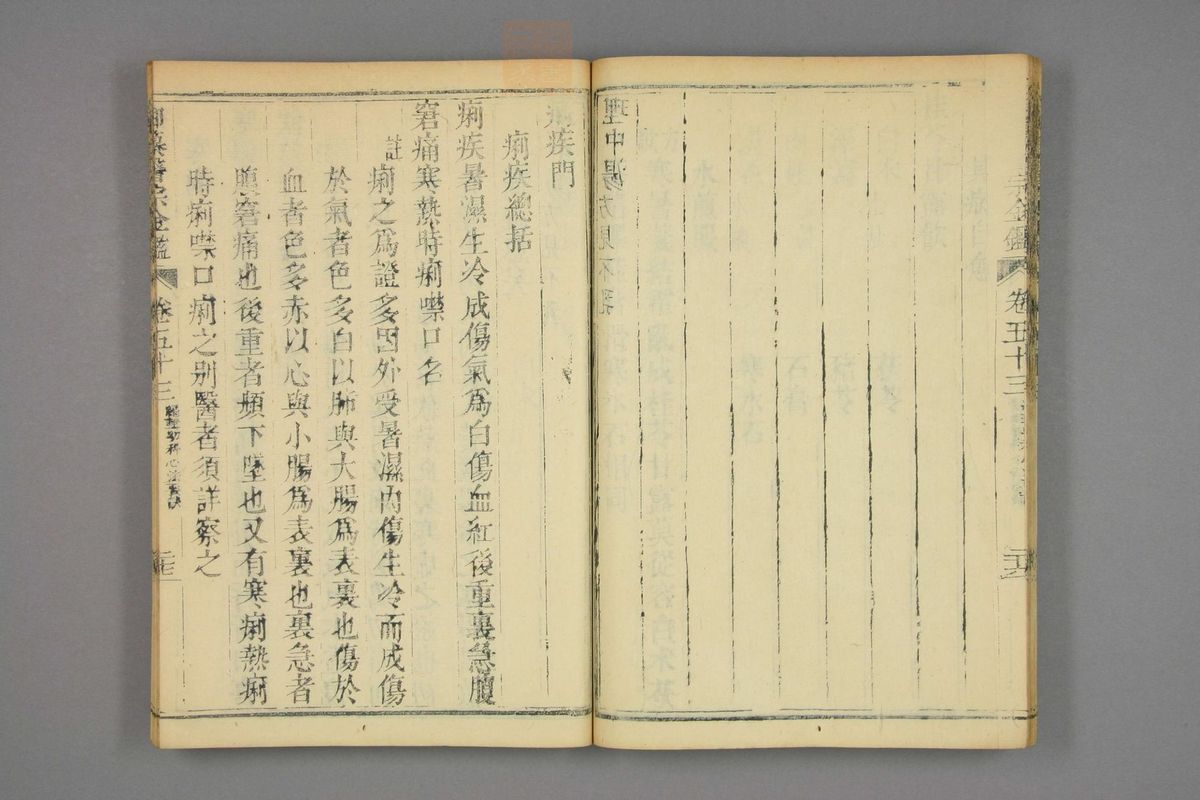 宗金鑑 卷五十三
理中湯方見不乳
痢疾門
痢疾總括
痢疾暑濕生冷成傷氣爲白傷血紅後重裏急腹
窘痛寒熱時痢噤口名
註 痢之爲證多因外受暑濕內傷生冷而成傷
於氣者色多白以肺與大腸爲表裏也傷於
血者色多赤以心與小腸爲表裏也裏急者
腹窘痛也後重者頻下墜也又有寒痢熱痢
時痢噤口痢之別醫者須詳察之
御纂醫宗金鑑 卷五十三 幼科心法要訣 二十七